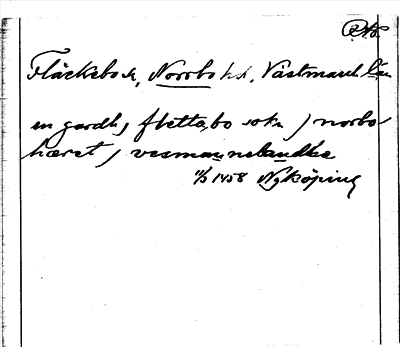 Fläckebo sn, Norrbo hd, Västmanl. län
en gardh j flettabo sokn j norbo
hæret j vesmannelandhe
1458 Nyköping